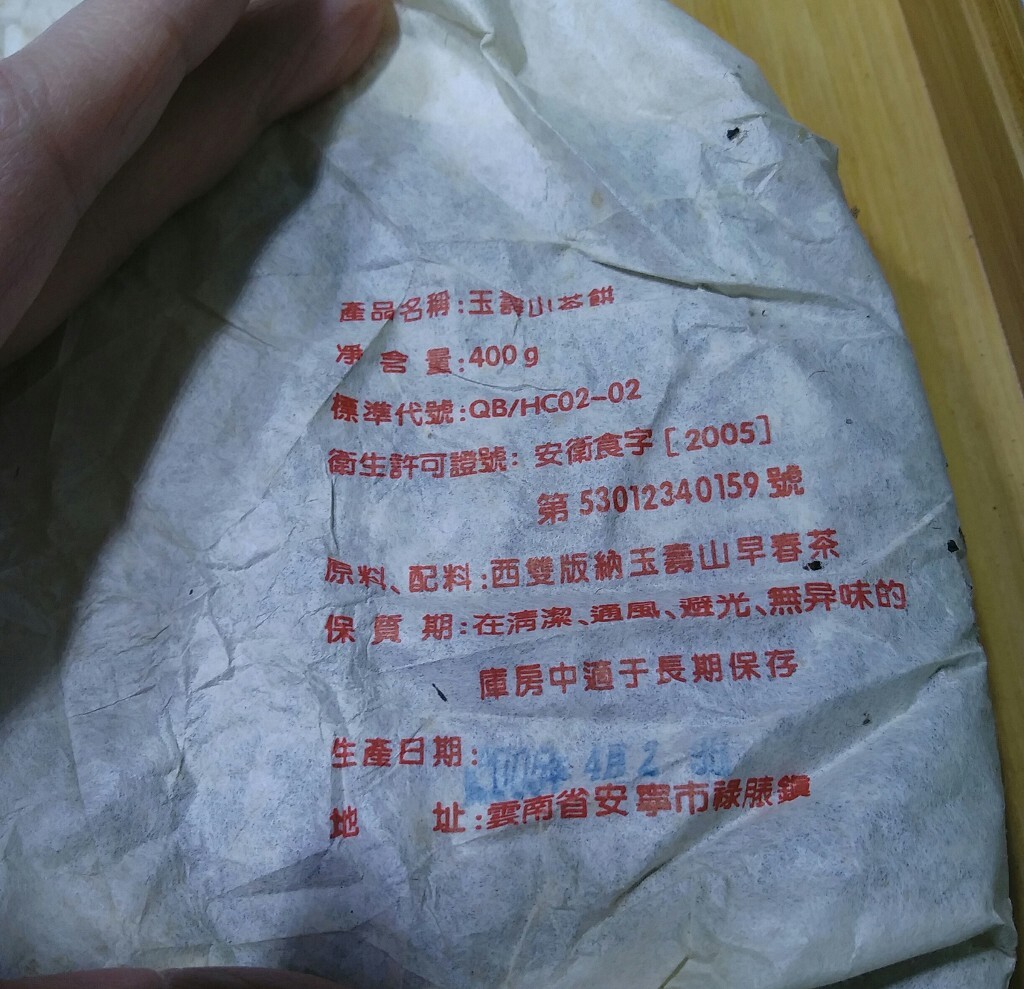 產品名稱:玉壽山茶餅
净含量:400g
標準代號:QB/HC02-02
衛生許可證號: 安衛食字[2005]
第53012340159號
原料、配料:西雙版納玉壽山早春茶
保質期:在清潔、通風、避光、無异味的
庫房中適于長期保存
生產日期: 4月2
地址:雲南省安寧市祿脿鎮